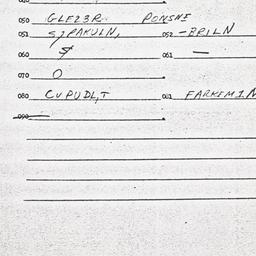 050 GLEZ3R. PONSNE
051 SJPAKULN, 052 -ERILN
060 $ 061 —
070 O
080 CUPUDL,T 081 FARKEMIN
090